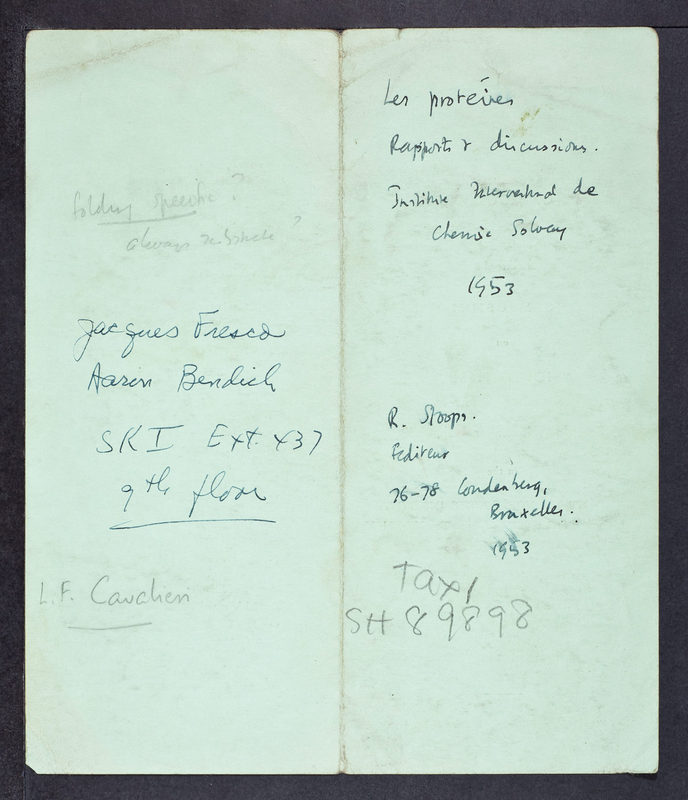 folding specific ?
always ?
Jacques Fresco
Aaron Bendich
SKI Ext. 437
9th floor
L.F. Cavalieri
Les protéines
Rapports & discussions.
Institut International de
Chemie Solvay
1953
R. Stoops.
Editeur
76-78 Coudenberg,
Bruxelles.
1953
Taxi
SH 89898